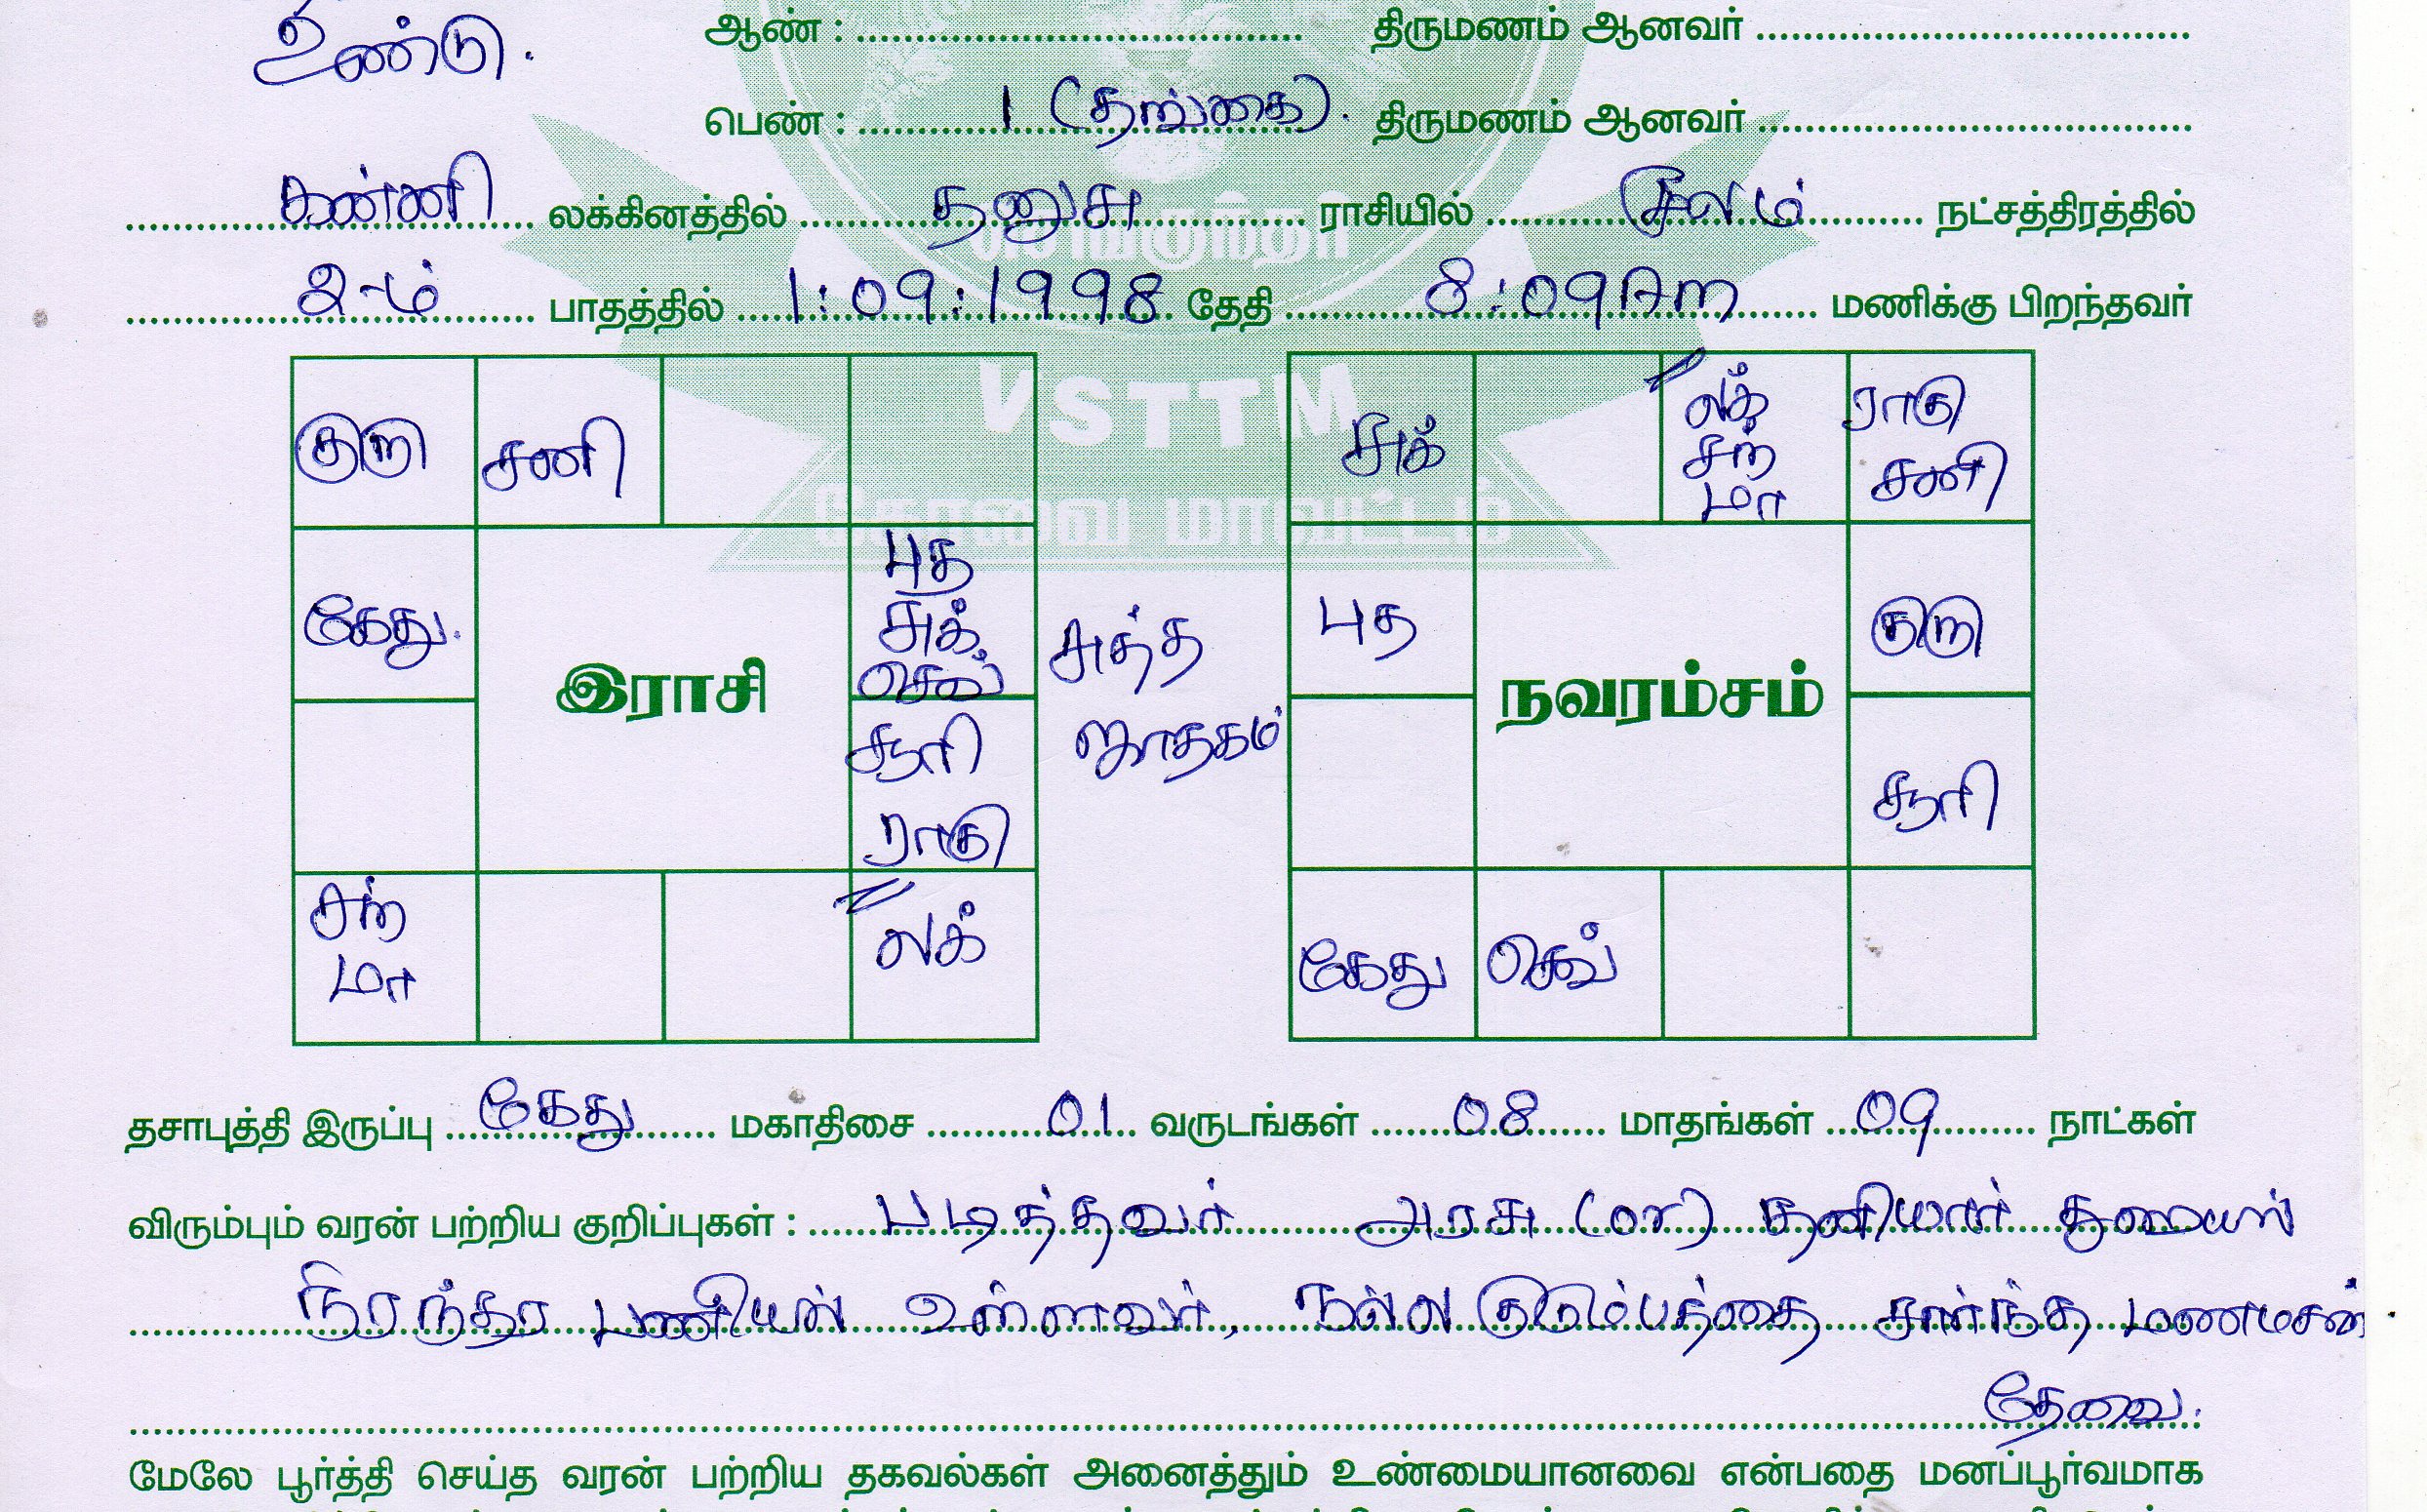 உண்டு.
ஆண் : திருமணம் ஆனவர்
பெண் : 1 (தங்கை). திருமணம் ஆனவர்
கன்னி லக்கினத்தில் தனுசு ராசியில் மூலம் நட்சத்திரத்தில்
2-ம் பாதத்தில் 1:09:1998 தேதி 8:09Am மணிக்கு பிறந்தவர்
VSTTM
கோவை மாவட்டம்
குரு சனி
கேது.
புத
சுக்
செவ்
இராசி
சூரி
ராகு
சந்
மா
லக்
சுத்த
ஜாதகம்
சுக்
லக்
சந்
மா
ராகு
சனி
புத
குரு
நவரம்சம்
சூரி
கேது செவ்
தசாபுத்தி இருப்பு கேது மகாதிசை 01 வருடங்கள் 08 மாதங்கள் 09 நாட்கள்
விரும்பும் வரன் பற்றிய குறிப்புகள் : படித்தவர் அரசு (or) தனியார் துறையில்
நிரந்தர பணியில் உள்ளவர், நல்ல குடும்பத்தை சார்ந்த மணமகன்
தேவை.
மேலே பூர்த்தி செய்த வரன் பற்றிய தகவல்கள் அனைத்தும் உண்மையானவை என்பதை மனப்பூர்வமாக